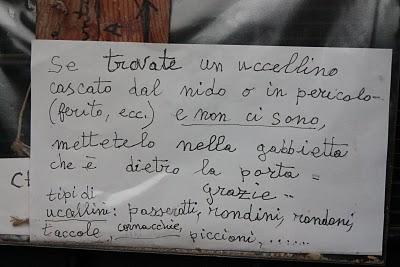 Se trovate un uccellino
cascato dal nido o in pericolo-
(ferito, ecc.) e non ci sono,
mettetelo nella gabbietta
che è dietro la porta =
grazie --
tipi di
uccellini: passerotti, rondini, rondoni,
taccole, cornacchie, piccioni, ......